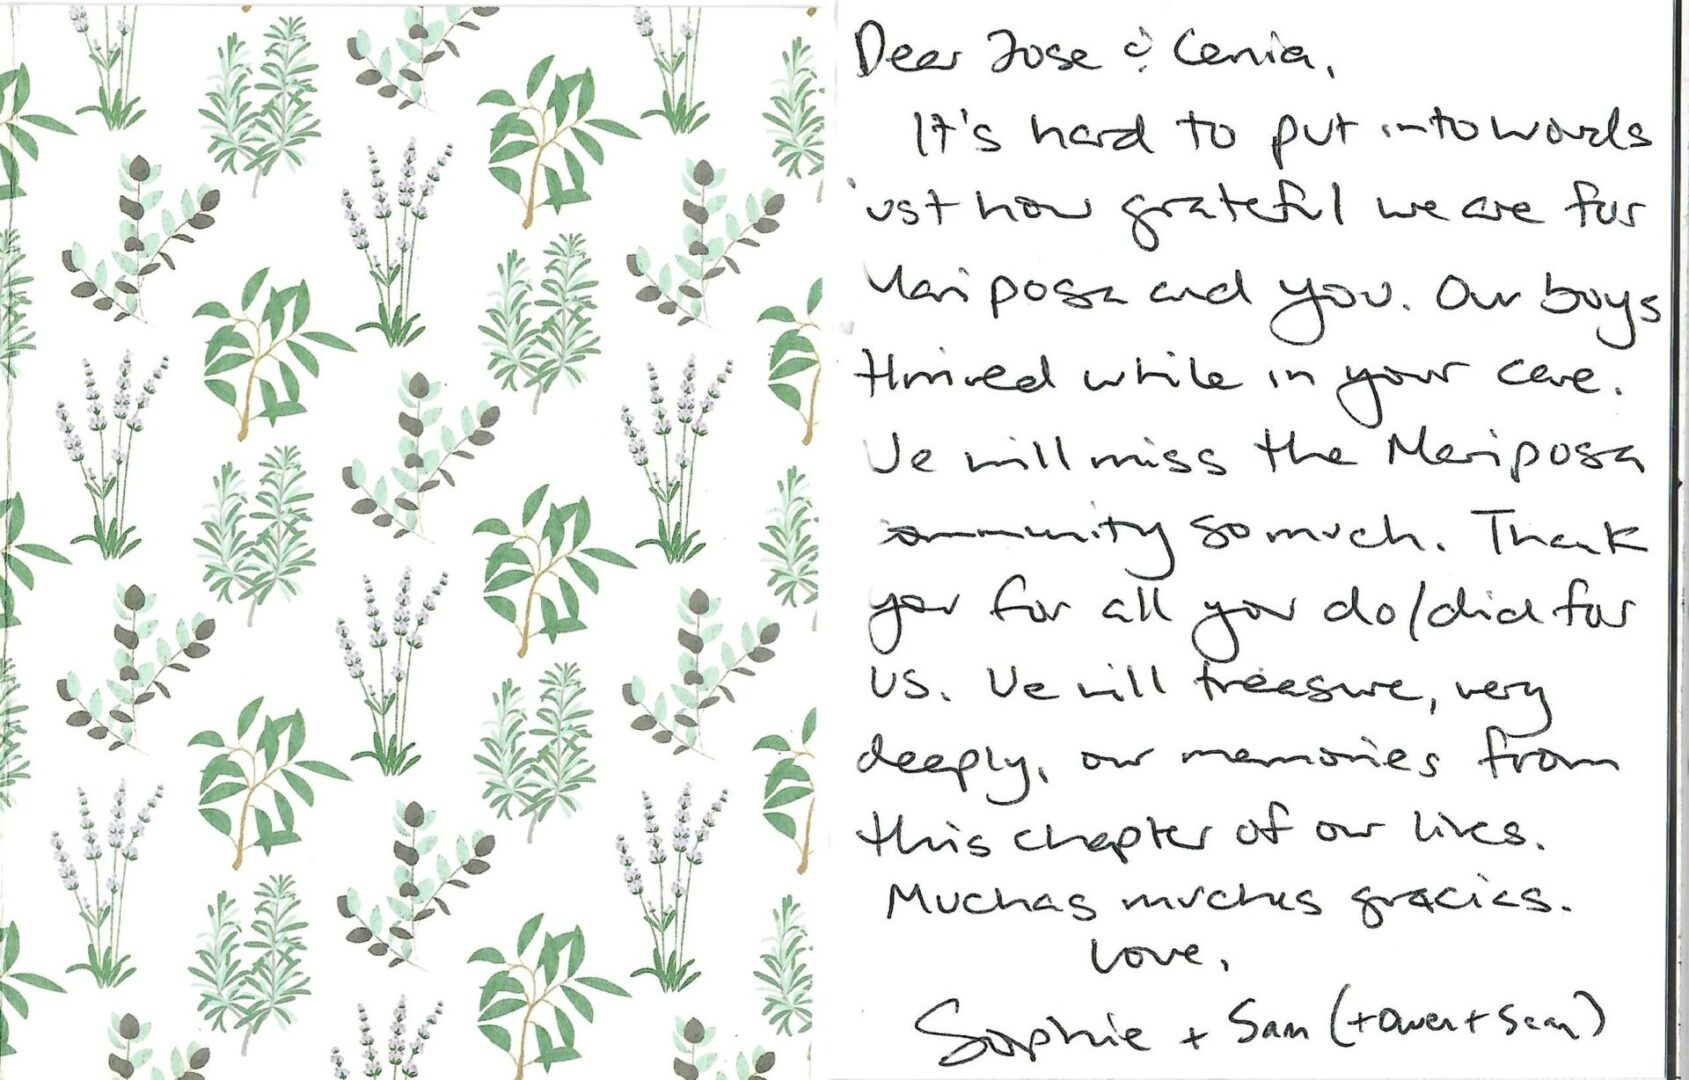 Dear Jose & Cenia,
It's hard to put into words
just how grateful we are for
Mariposa and you. Our boys
thrived while in your care.
We will miss the Mariposa
community so much. Thank
you for all you do/did for
us. We will treasure, very
deeply, our memories from
this chapter of our lives.
Muchas muchas gracias.
Love,
Sophie + Sam (+ Owen + Sean)